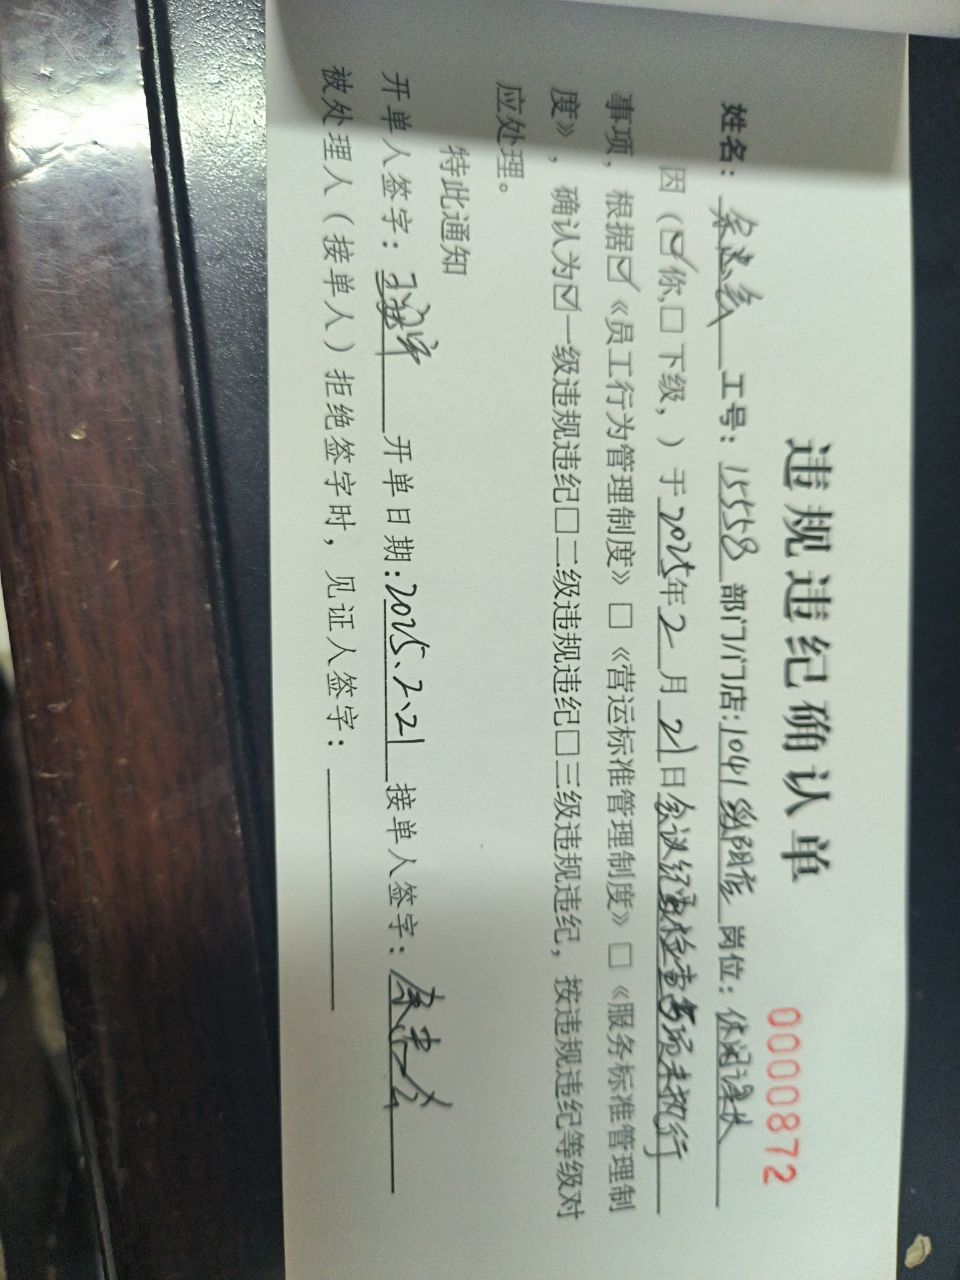 违规违纪确认单
0000872
姓名: 工号: 15558 部门/门店: 1041 阳店 岗位: 休闲课长
因(☑你,□下级,)于2025年2月21日会议纪要检查卖场未执行
事项, 根据☑《员工行为管理制度》□《营运标准管理制度》□《服务标准管理制
度》, 确认为☑一级违规违纪□二级违规违纪□三级违规违纪, 按违规违纪等级对
应处理。
特此通知
开单人签字: 开单日期: 2025.2.21 接单人签字:
被处理人(接单人)拒绝签字时, 见证人签字: